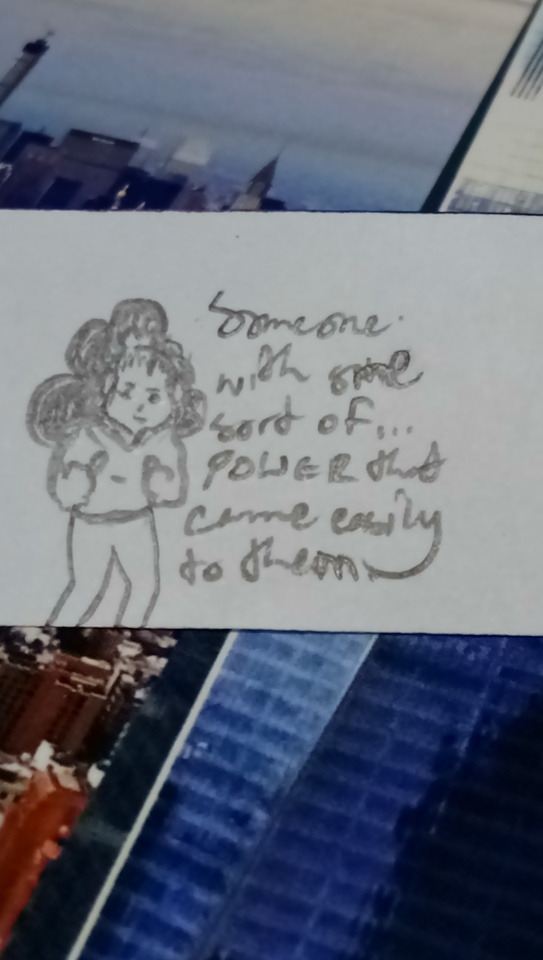 Someone.
with some
sort of...
POWER that
came easily
to them